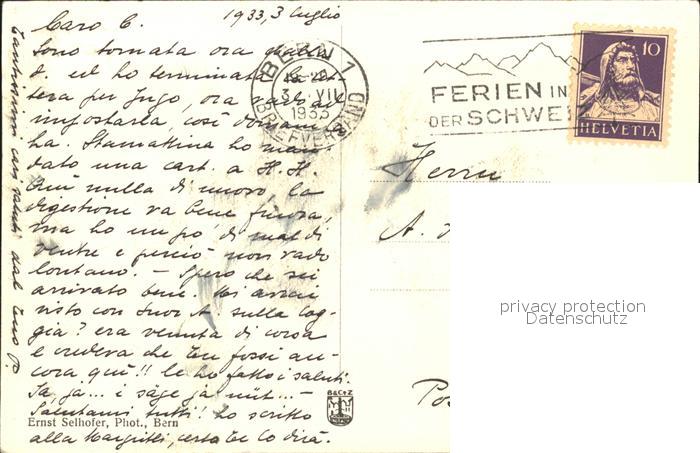 1933, 3 luglio
Caro C.
Sono tornata ora
d. ed ho terminata la let-
tera per Jugo, ora vado ad
impostarla, così domani
ha. Stamattina ho man-
dato una cart. a H. H.
Più nulla di nuovo, la
digestione va bene finora,
ma ho un po' di mal di
ventre e perciò non vado
lontano. – Spero che sei
arrivato bene. Mi avrai
visto con Suor A. sulla log-
gia? era venuta di corsa
e credeva che tu fossi an-
cora quì!! le ho fatto i saluti.
Ja, ja... i säge ja nüt... –
Salutami tutti! ho scritto
alla Margritli, certo te lo dirà.
Tantissimi cari saluti dal tuo P.
Ernst Selhofer, Phot., Bern
BERN 1
3. VII
1933
BRIEFVERSAND
FERIEN IN
DER SCHWEIZ
10
HELVETIA
Herrn
A.
Po
B&C&Z
privacy protection
Datenschutz